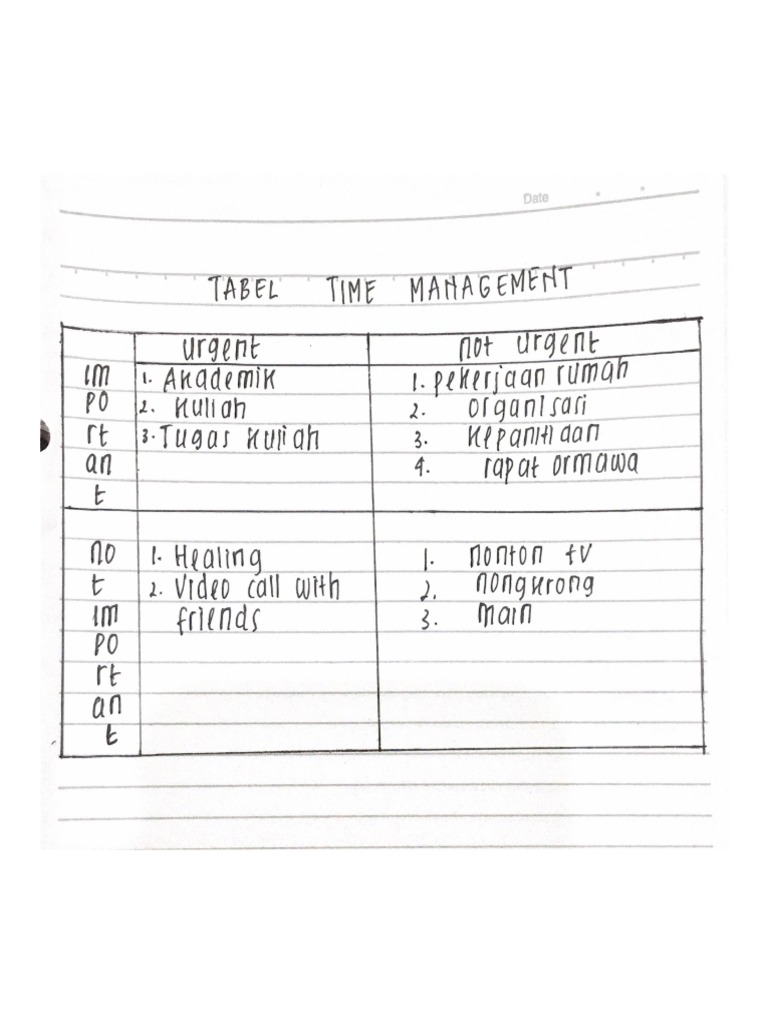 Date
TABEL TIME MANAGEMENT
urgent not urgent
im 1. Akademik 1. pekerjaan rumah
po 2. kuliah 2. organisasi
rt 3. Tugas kuliah 3. kepanitiaan
an 4. rapat ormawa
t
no 1. Healing 1. nonton tv
t 2. Video call with 2. nongkrong
im friends 3. main
po
rt
an
t